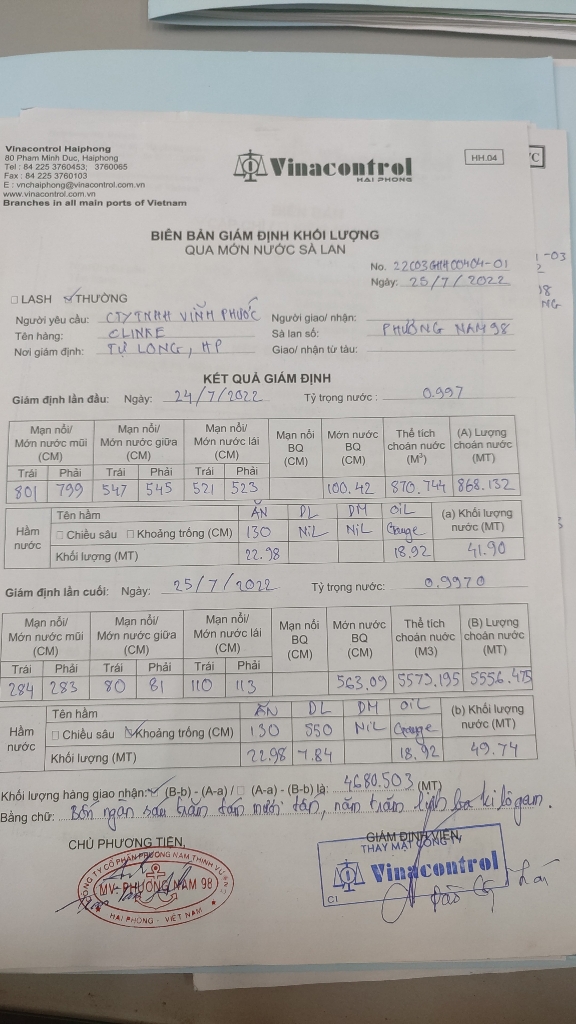 Vinacontrol Haiphong
80 Pham Minh Duc, Haiphong
Tel : 84 225 3760453; 3760065
Fax : 84 225 3760103
E : vnchaiphong@vinacontrol.com.vn
www.vinacontrol.com.vn
Branches in all main ports of Vietnam
Vinacontrol
HAI PHONG
HH.04
BIÊN BẢN GIÁM ĐỊNH KHỐI LƯỢNG
QUA MỚN NƯỚC SÀ LAN
No. 22C03GHH00404-01
Ngày: 25/7/2022
LASH THƯỜNG
Người yêu cầu: CTY TNHH VĨNH PHƯỚC Người giao/ nhận:
Tên hàng: CLINKE Sà lan số: PHƯƠNG NAM 98
Nơi giám định: TỰ LONG, HP Giao/ nhận từ tàu:
KẾT QUẢ GIÁM ĐỊNH
Giám định lần đầu: Ngày: 24/7/2022 Tỷ trọng nước : 0.997
Mạn nổi/ Mớn nước mũi (CM) Mạn nổi/ Mớn nước giữa (CM) Mạn nổi/ Mớn nước lái (CM) Mạn nổi BQ (CM) Mớn nước BQ (CM) Thể tích choán nước (M³) (A) Lượng choán nước (MT)
Trái Phải Trái Phải Trái Phải
801 799 547 545 521 523 100.42 870.744 868.132
Hầm nước
Tên hầm ĂN DL DM OIL (a) Khối lượng nước (MT)
Chiều sâu Khoảng trống (CM) 130 NiL NiL
Khối lượng (MT) 22.98 18.92 41.90
Giám định lần cuối: Ngày: 25/7/2022 Tỷ trọng nước: 0.9970
Mạn nổi/ Mớn nước mũi (CM) Mạn nổi/ Mớn nước giữa (CM) Mạn nổi/ Mớn nước lái (CM) Mạn nổi BQ (CM) Mớn nước BQ (CM) Thể tích choán nước (M3) (B) Lượng choán nước (MT)
Trái Phải Trái Phải Trái Phải
284 283 80 81 110 113 563.09 5573.195 5556.475
Hầm nước
Tên hầm ĂN DL DM OIL (b) Khối lượng nước (MT)
Chiều sâu Khoảng trống (CM) 130 550 NiL
Khối lượng (MT) 22.98 7.84 18.92 49.74
Khối lượng hàng giao nhận: (B-b) - (A-a) / (A-a) - (B-b) là: 4680.503 (MT)
Bằng chữ: Bốn ngàn sáu trăm tám mươi tấn, năm trăm linh ba ki lô gam.
CHỦ PHƯƠNG TIỆN, GIÁM ĐỊNH VIÊN,
THAY MẶT CÔNG TY
Vinacontrol
C1
CÔNG TY CỔ PHẦN PHƯƠNG NAM THỊNH VƯỢNG
MV: PHƯƠNG NAM 98
HẢI PHÒNG - VIỆT NAM